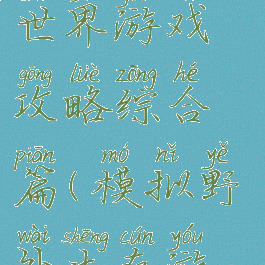 世界游戏
gōng lüè zōng hé
攻略综合
piān mó nǐ yě
篇(模拟野
wài shēng cún yóu
外生存游